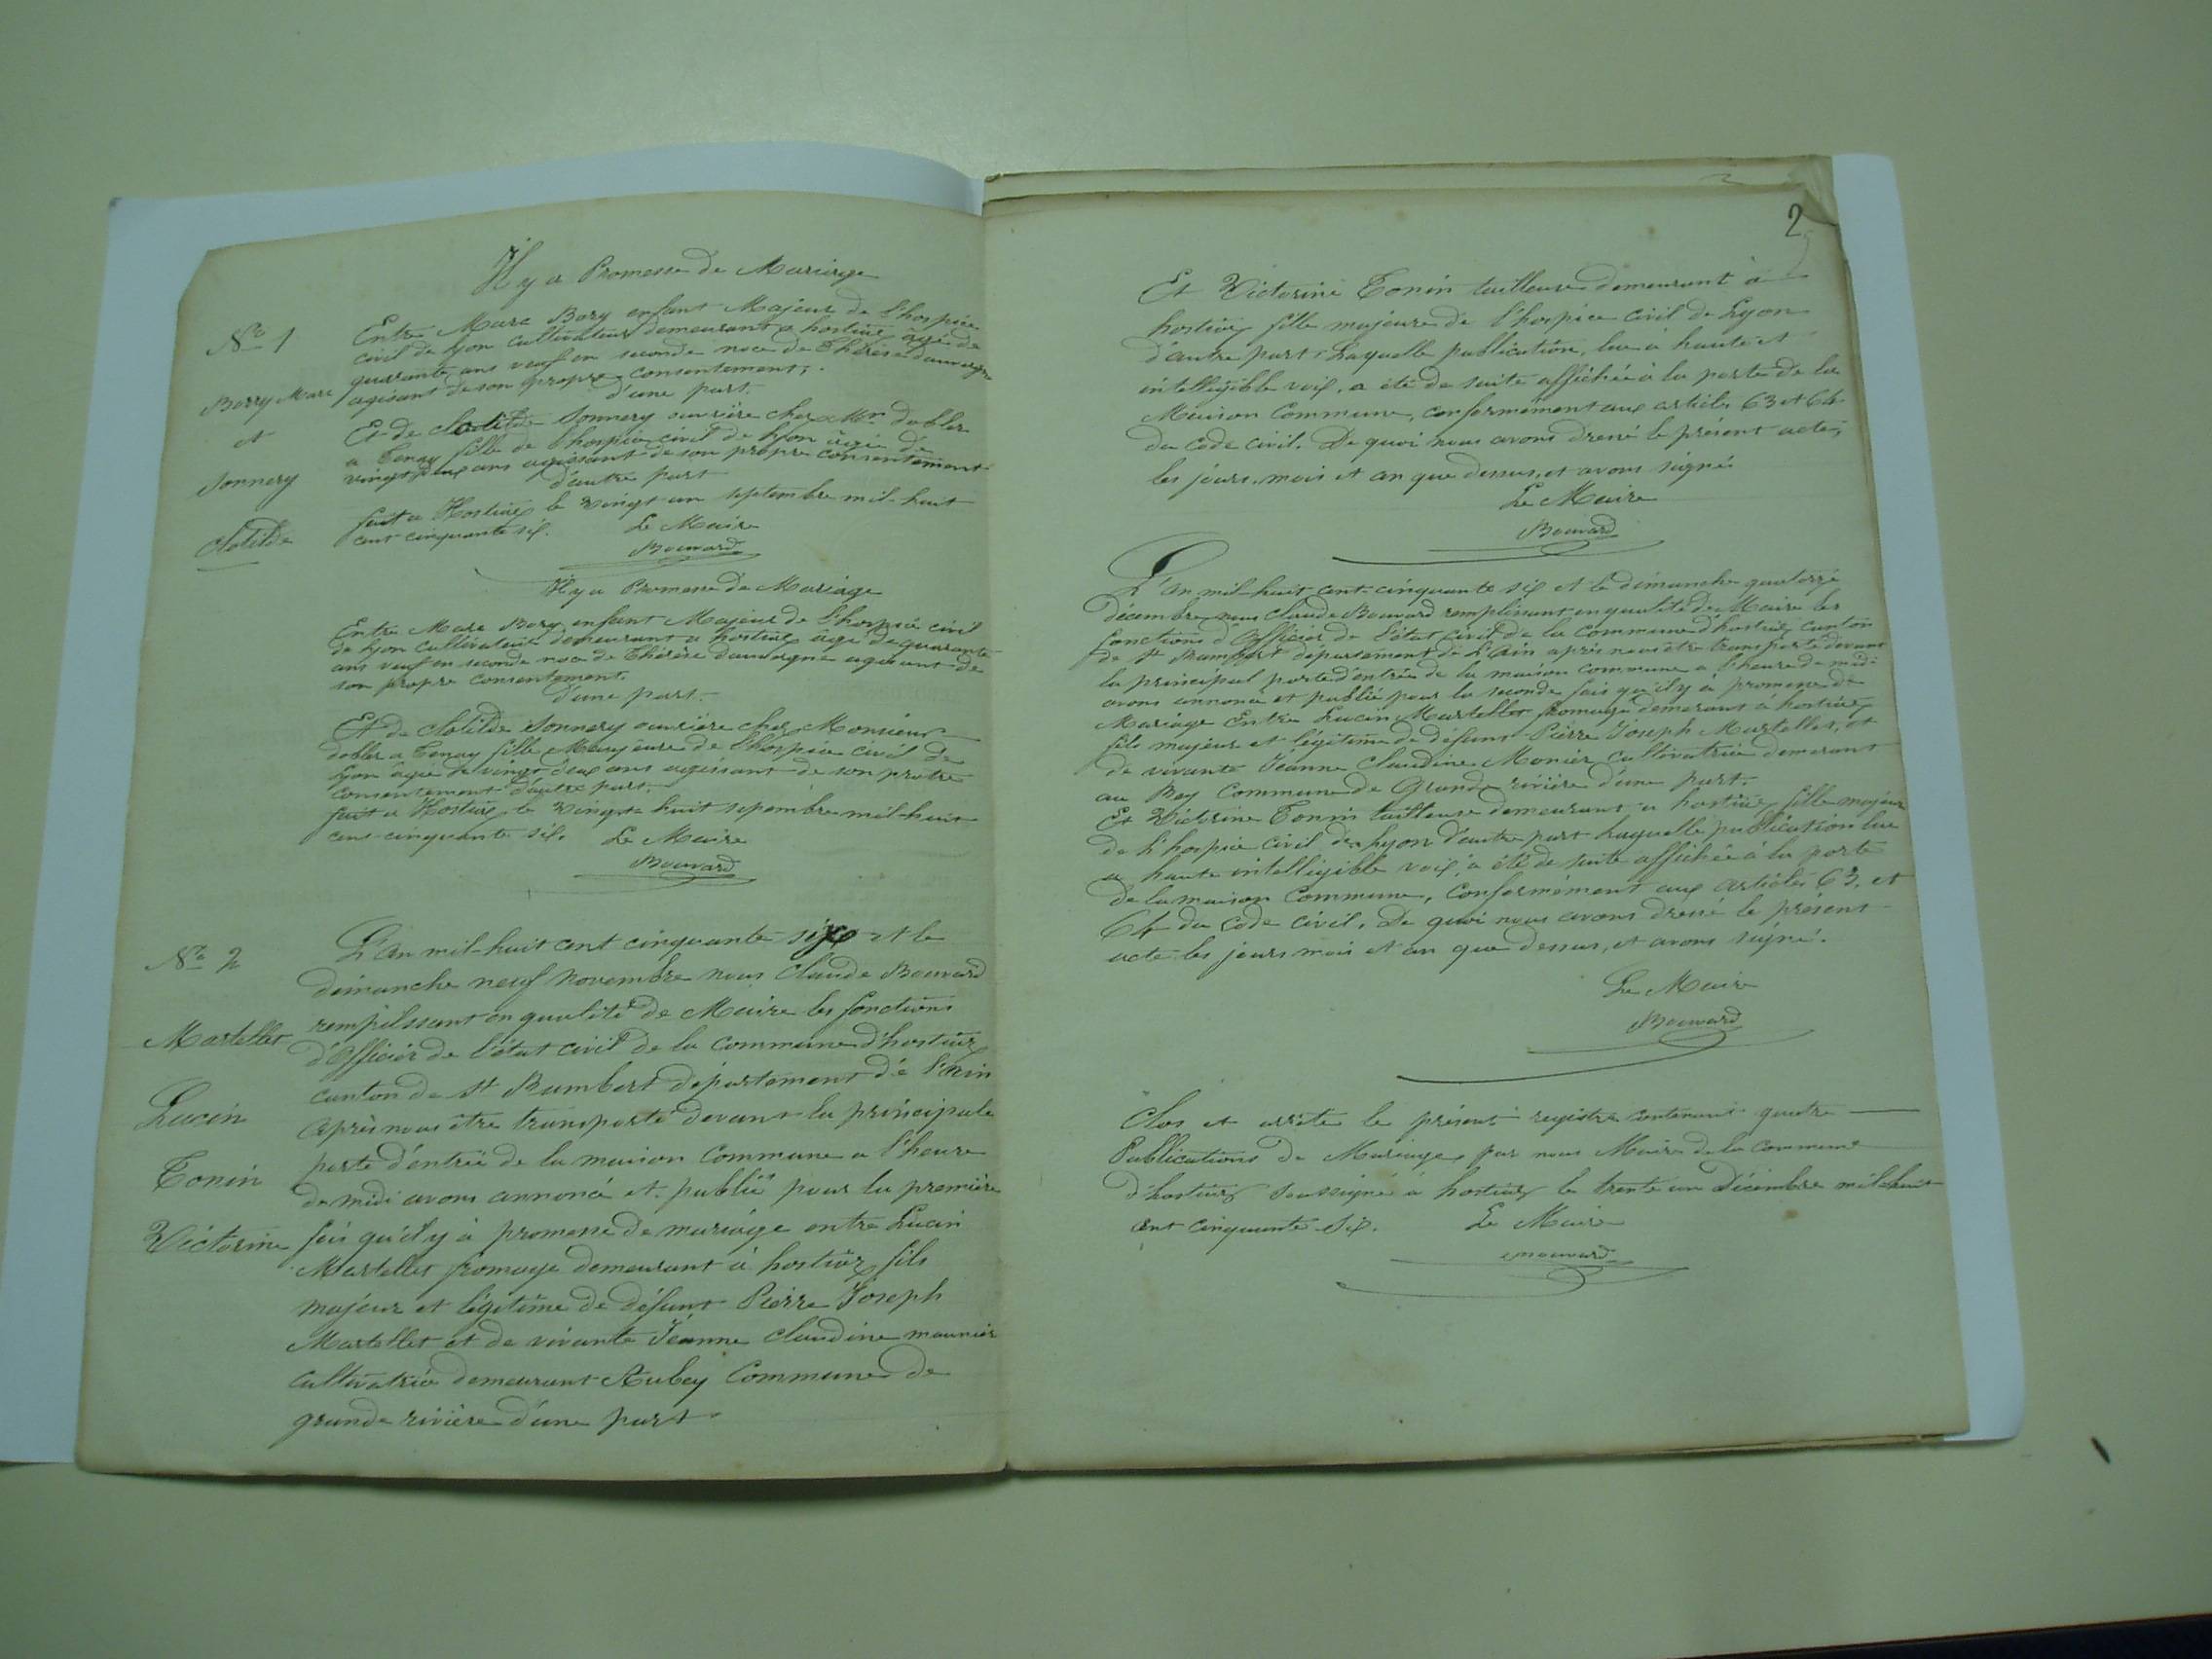 Il y a Promesse de Mariage
No 1
Entre Marc Bory enfant Majeur de l'hospice
civil de lyon cultivateur demeurant a hostiaz âgé de
quarante ans veuf en seconde noce de Thérèse dauvergne
agisant de son propre consentement,
d'une part.
Borry Marc
et
Sonnery
Clotilde
Et de Clotilde Sonnery ouvrière chez Mr dobler
a Tenay fille de l'hospice civil de lyon âgée de
vingt deux ans agissant de son propre consentement
d'autre part
fait a Hostiaz le vingt un septembre mil-huit
cent cinquante six.
Le Maire
Bouvard
Il y a Promesse de Mariage
Entre Marc Bory enfant Majeur de l'hospice civil
de lyon cultivateur demeurant a hostiaz âgé de quarante
ans veuf en seconde noce de Thérèse dauvergne agisant de
son propre consentement
d'une part.
Et de Clotilde Sonnery ouvrière chez Monsieur
dobler a Tenay fille Majeure de l'hospice civil de
lyon âgée de vingt deux ans agissant de son protre
consentement d'autre part.
fait a Hostiaz le vingt-huit sepembre mil-huit
cent cinquante six.
Le Maire
Bouvard
No 2
Martellet
Lucin
Tonin
Victorine
L'an mil-huit cent cinquante six et le
dimanche neuf novembre nous Claude Bouvard
rempilssant en qualité de Maire les fonctions
d'Officier de l'état civil de la Commune d'hostiaz
canton de st Rambert département dé l'Ain
après nous être transporté devant la principale
porte d'entrée de la maison Commune a l'heure
de midi avons annoncé et publié pour la première
fois qu'il y à promesse de mariage entre Lucin
Martellet fromage demeurant à hostiaz fils
majeur et légitime de défunt Pierre Joseph
Martellet et de vivante Jéanne claudine mounier
cultivatrice demeurant Aubey Commune de
grande rivière d'une part
2
Et Victorine Tonin tailleuse demeurant à
hostiaz fille majeure de l'hospice civil de Lyon
d'autre part. Laquelle publication, lue à haute et
intelligible voix, a été de suite affichée à la porte de la
Maison Commune, conformément aux articles 63 et 64
du code civil. De quoi nous avons dressé le présent acte,
les jours, mois et an que dessus, et avons signé.
Le Maire
Bouvard
L'an mil-huit-cent-cinquante six et le dimanche quatorze
décembre nous Claude Bouvard remplissant en qualité de Maire les
fonctions d'Officier de l'état civil de la Commune d'hostiaz canton
de St Rambert département de L'Ain après nous être transporté devant
la principal porte d'entrée de la maison commune a l'heure de midi
avons annoncé et publié pour la seconde fois qu'il y à promesse de
Mariage Entre Lucin Martellet fromage demeurant à hostiaz
fils majeur et légitime de défunt Pierre Joseph Martellet, et
de vivante Jéanne Claudine Monier cultivatrice demeurant
au Bey Commune de Grande rivière d'une part.
Et Victorine Tonin tailleuse demeurant a hostiaz fille majeure
de l'hospice civil de Lyon d'autre part Laquelle publication lue
a haute intelligible voix, a été de suite affichée à la porte
de la maison Commune, conformément aux articles 63, et
64 du code civil. De quoi nous avons dressé le présent
acte les jours mois et an que dessus, et avons signé.
Le Maire
Bouvard
Clos et arrêté le présent registre contenant quatre
Publications de Mariages par nous Maire de la commune
d'hostiaz soussigné à hostiaz le trente un Décembre mil-huit
cent cinquante six.
Le Maire
Bouvard